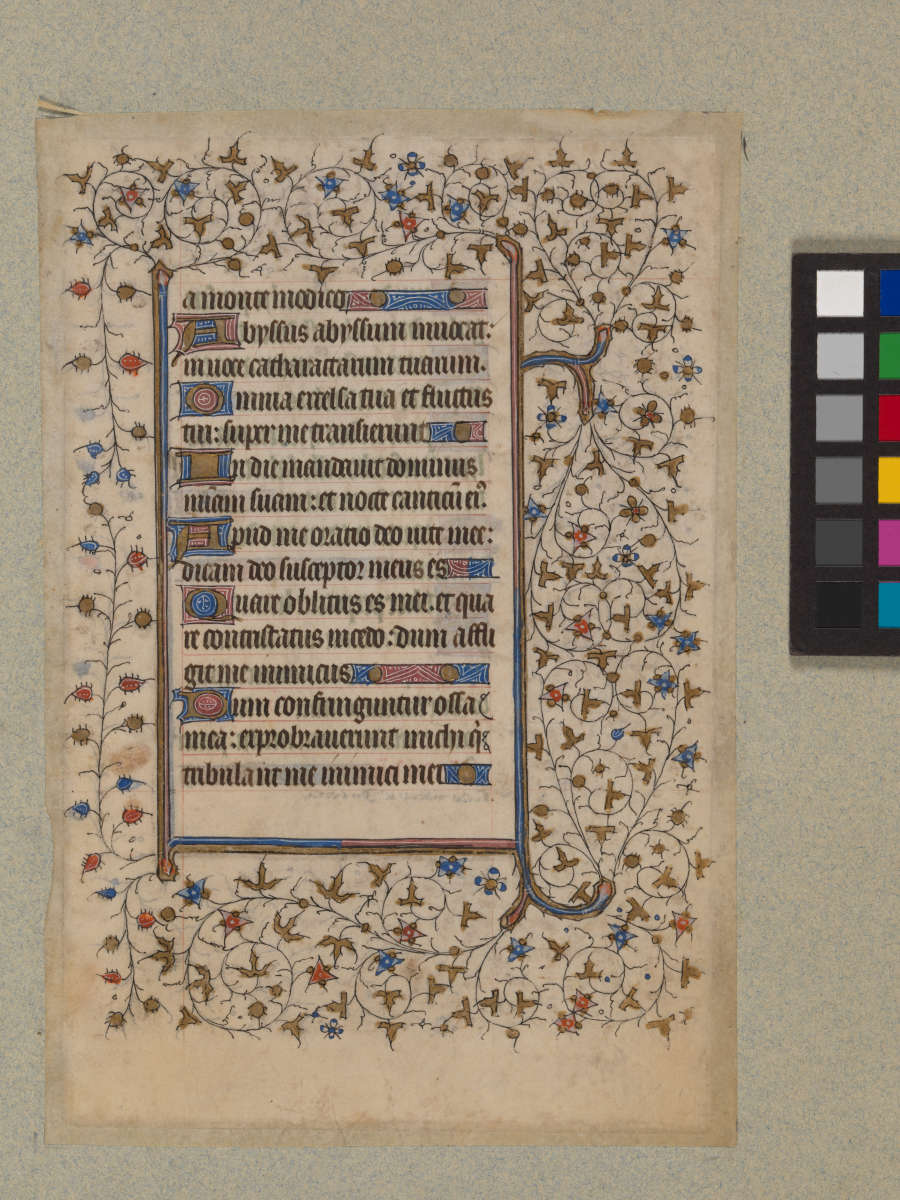 a monte modico
Abyssus abyssum inuocat:
in uoce catharactarum tuarum.
Omnia excelsa tua et fluctus
tui: super me transierunt
In die mandauit dominus
miam suam: et nocte canticū eiꝰ.
Apud me oratio deo uite mee:
dicam deo susceptor meus es
Quare oblitus es mei. et qua
re contristatus incedo: dum affli
git me inimicus
Dum confringuntur ossa
mea: exprobrauerunt michi q̇
tribulant me inimici mei